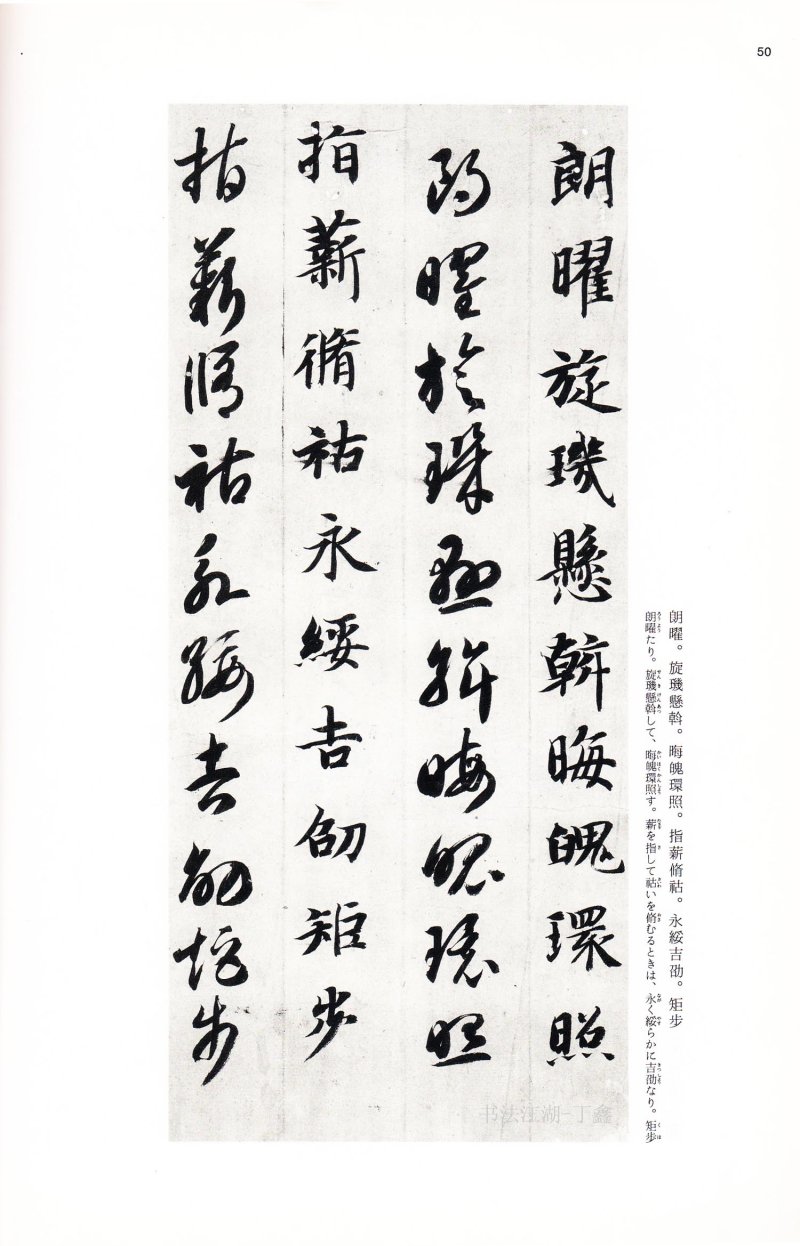 50
朗曜。旋璣懸斡。晦魄環照。指薪脩祜。永綏吉劭。矩步
朗曜たり。旋璣懸斡して、晦魄環照す。薪を指して祜いを脩むるときは、永く綏らかに吉劭なり。矩歩
朗曜旋璣懸斡晦魄環照
朗曜旋璣懸斡晦魄環照
指薪脩祜永綏吉劭矩步
指薪脩祜永綏吉劭矩步
书法江湖-丁鑫